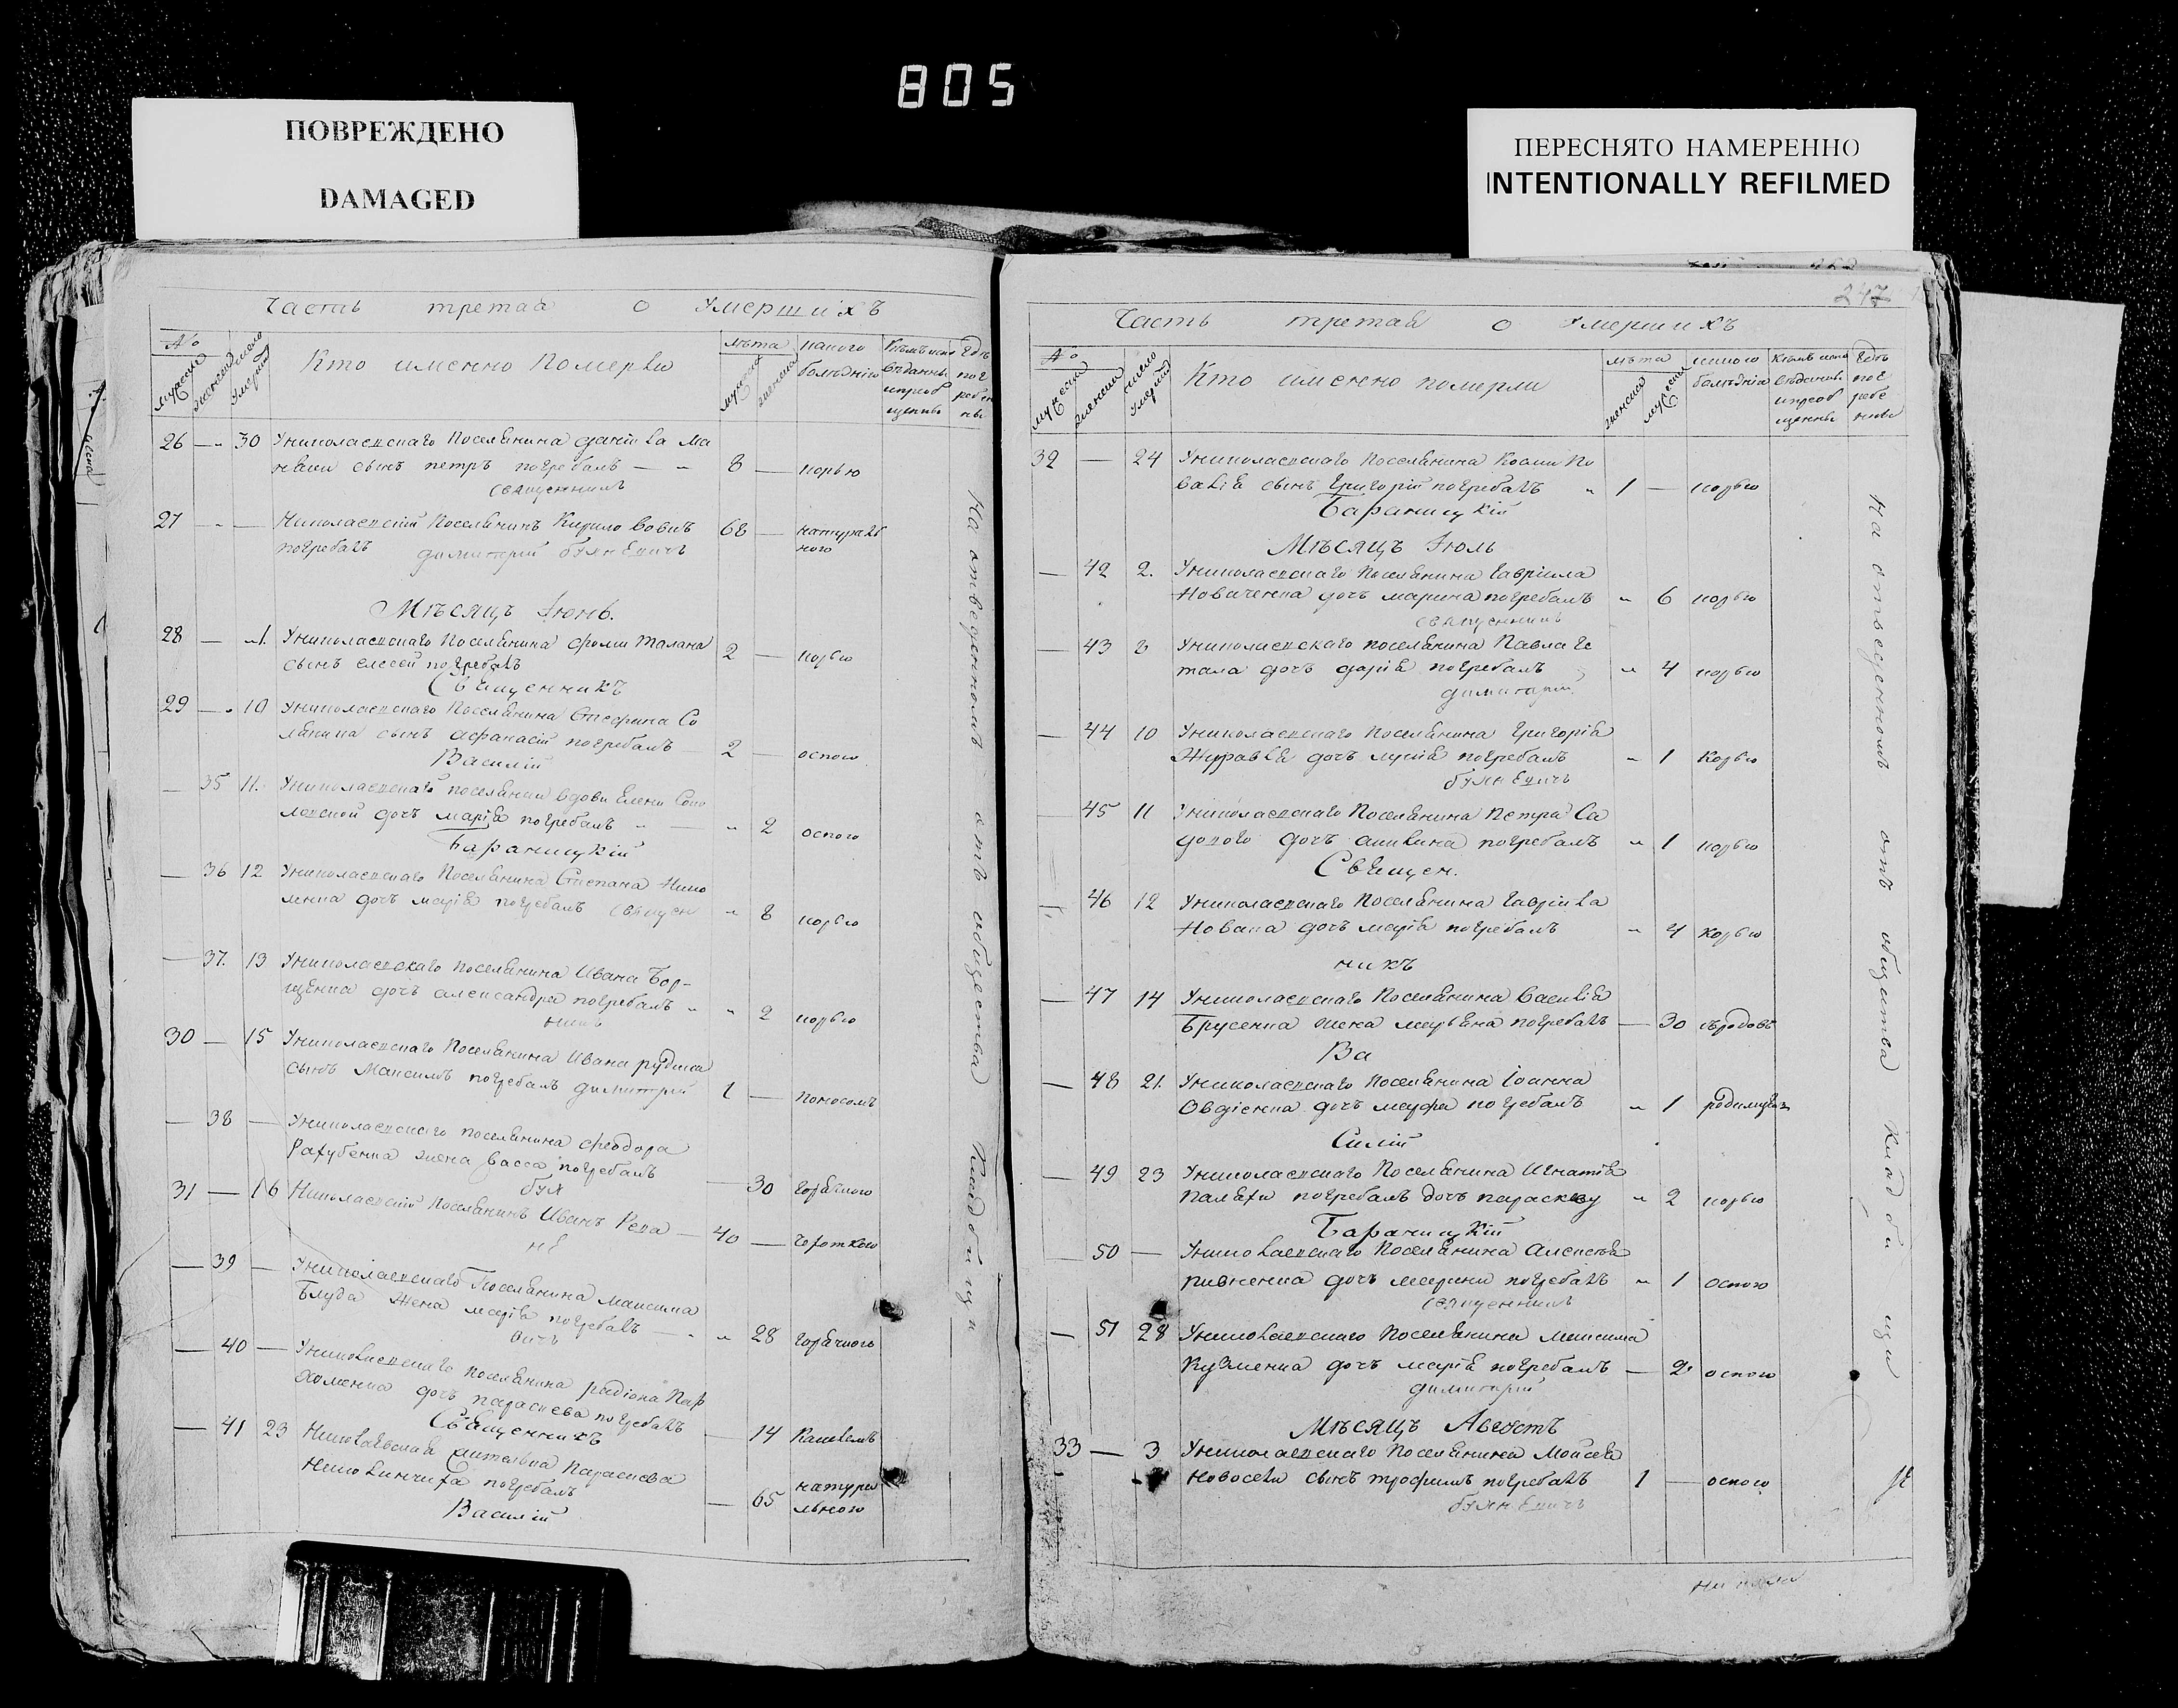 805
ПОВРЕЖДЕНО
DAMAGED
ПЕРЕСНЯТО НАМЕРЕННО
INTENTIONALLY REFILMED
Часть третая о Умершихъ
№
мужеска
женска
число умерш
Кто именно Померли
лѣта
мужеска
женска
какого
болѣзнію
Кѣмъ испо
вѣданы
и приоб
щены
Гдѣ
пог
ребен
ны
26 — „ 30 Униколаевскаго Поселянина Данiила Ма
сынъ петръ погребалъ — „ 8 — корью
священникъ
27 „ — Николаевскій Поселянинъ Кирило Вовкъ 68 — натураль
погребалъ ного
димитрій
Мѣсяцъ Іюнь.
28 — „1. Униколаевскаго Поселянина Фомы Талана
сынъ елесей погребалъ 2 — корью
Священникъ
29 — „ 10 Униколаевскаго Поселянина Стефана Со
сынъ Афанасій погребалъ 2 — оспою
Василій
— 35 11. Униколаевскаго поселянки вдови Елени Соко
ловской дочь марія погребалъ „ — „ 2 оспою
Бараницкій
— 36 12 Униколаевскаго Поселянина Степана
дочь марія погребалъ священ „ 8 корью
— 37. 13 Униколаевскаго Поселянина Ивана Бор-
щенка дочь александра погребалъ „ „ 2 корью
никъ
30 — 15 Униколаевскаго Поселянина Ивана рудика
сынъ Максимъ погребалъ димитрій 1 — поносомъ
— 38 — Униколаевскаго поселянина феодора
жена васса погребалъ — 30 горячкою
31 — 16 Николаевскій Поселянинъ Иванъ Репа — 40 — чахоткою
— 39 — Униколаевскаго Поселянина максима
Блуда жена марія погребалъ — „ „ 28 горячкою
вичъ
— 40 — Униколаевскаго поселянина радіона Пар
хоменка дочь параскева погребалъ — 14 Кашелемъ
Священникъ
— 41 23 Николаевская жителька Параскева
погребалъ — 65 натура
льною
Василій
На отведенномъ отъ общества Кладбищи
247
Часть третая о Умершихъ
№
мужеска
женска
число умерш
Кто именно померли
лѣта
женска
мужеска
какого
болѣзнію
Кѣмъ испо
вѣданы
и приоб
щены
Гдѣ
пог
ребе
нны
32 — 24 Униколаевскаго Поселянина Козми Ко
валя сынъ Григорій погребалъ „ 1 — корью
Бараницкій
Мѣсяцъ Іюль
— 42 2. Униколаевскаго Поселянина Гавріила
Новиченка дочь марина погребалъ „ 6 корью
священникъ
— 43 8 Униколаевскаго поселянина Павла Ге
тала дочь дарія погребалъ „ 4 корью
димитрій
— 44 10 Униколаевскаго Поселянина Григорія
Журавля дочь марія погребалъ „ 1 Корью
45 11 Униколаевскаго Поселянина Петра Са
дового дочь акилина погребалъ „ 1 корью
Священ.
— 46 12 Униколаевскаго Поселянина Гавріила
Новака дочь марія погребалъ „ 4 корью
никъ
— 47 14 Униколаевскаго Поселянина Василія
Брусенка жена погребалъ — 30
Ва
— 48 21. Униколаевскаго Поселянина Іоанна
Овдіенка дочь марфа погребалъ „ 1 родимцемъ
силій
— 49 23 Униколаевскаго Поселянина Игнатія
Палѣхи погребалъ дочь параскеву „ 2 корью
Бараницкій
— 50 — Униколаевскаго Поселянина Алексѣя
ривненка дочь марина погребалъ „ 1 оспою
священникъ
— 51 28 Униколаевскаго Поселянина максима
Кузменка дочь марія погребалъ — 2 оспою
димитрій
Мѣсяцъ Августъ
33 — 3 Униколаевскаго Поселянина Моисея
Новосели сынъ трофимъ погребалъ 1 — оспою
На отведенномъ отъ общества Кладбищи